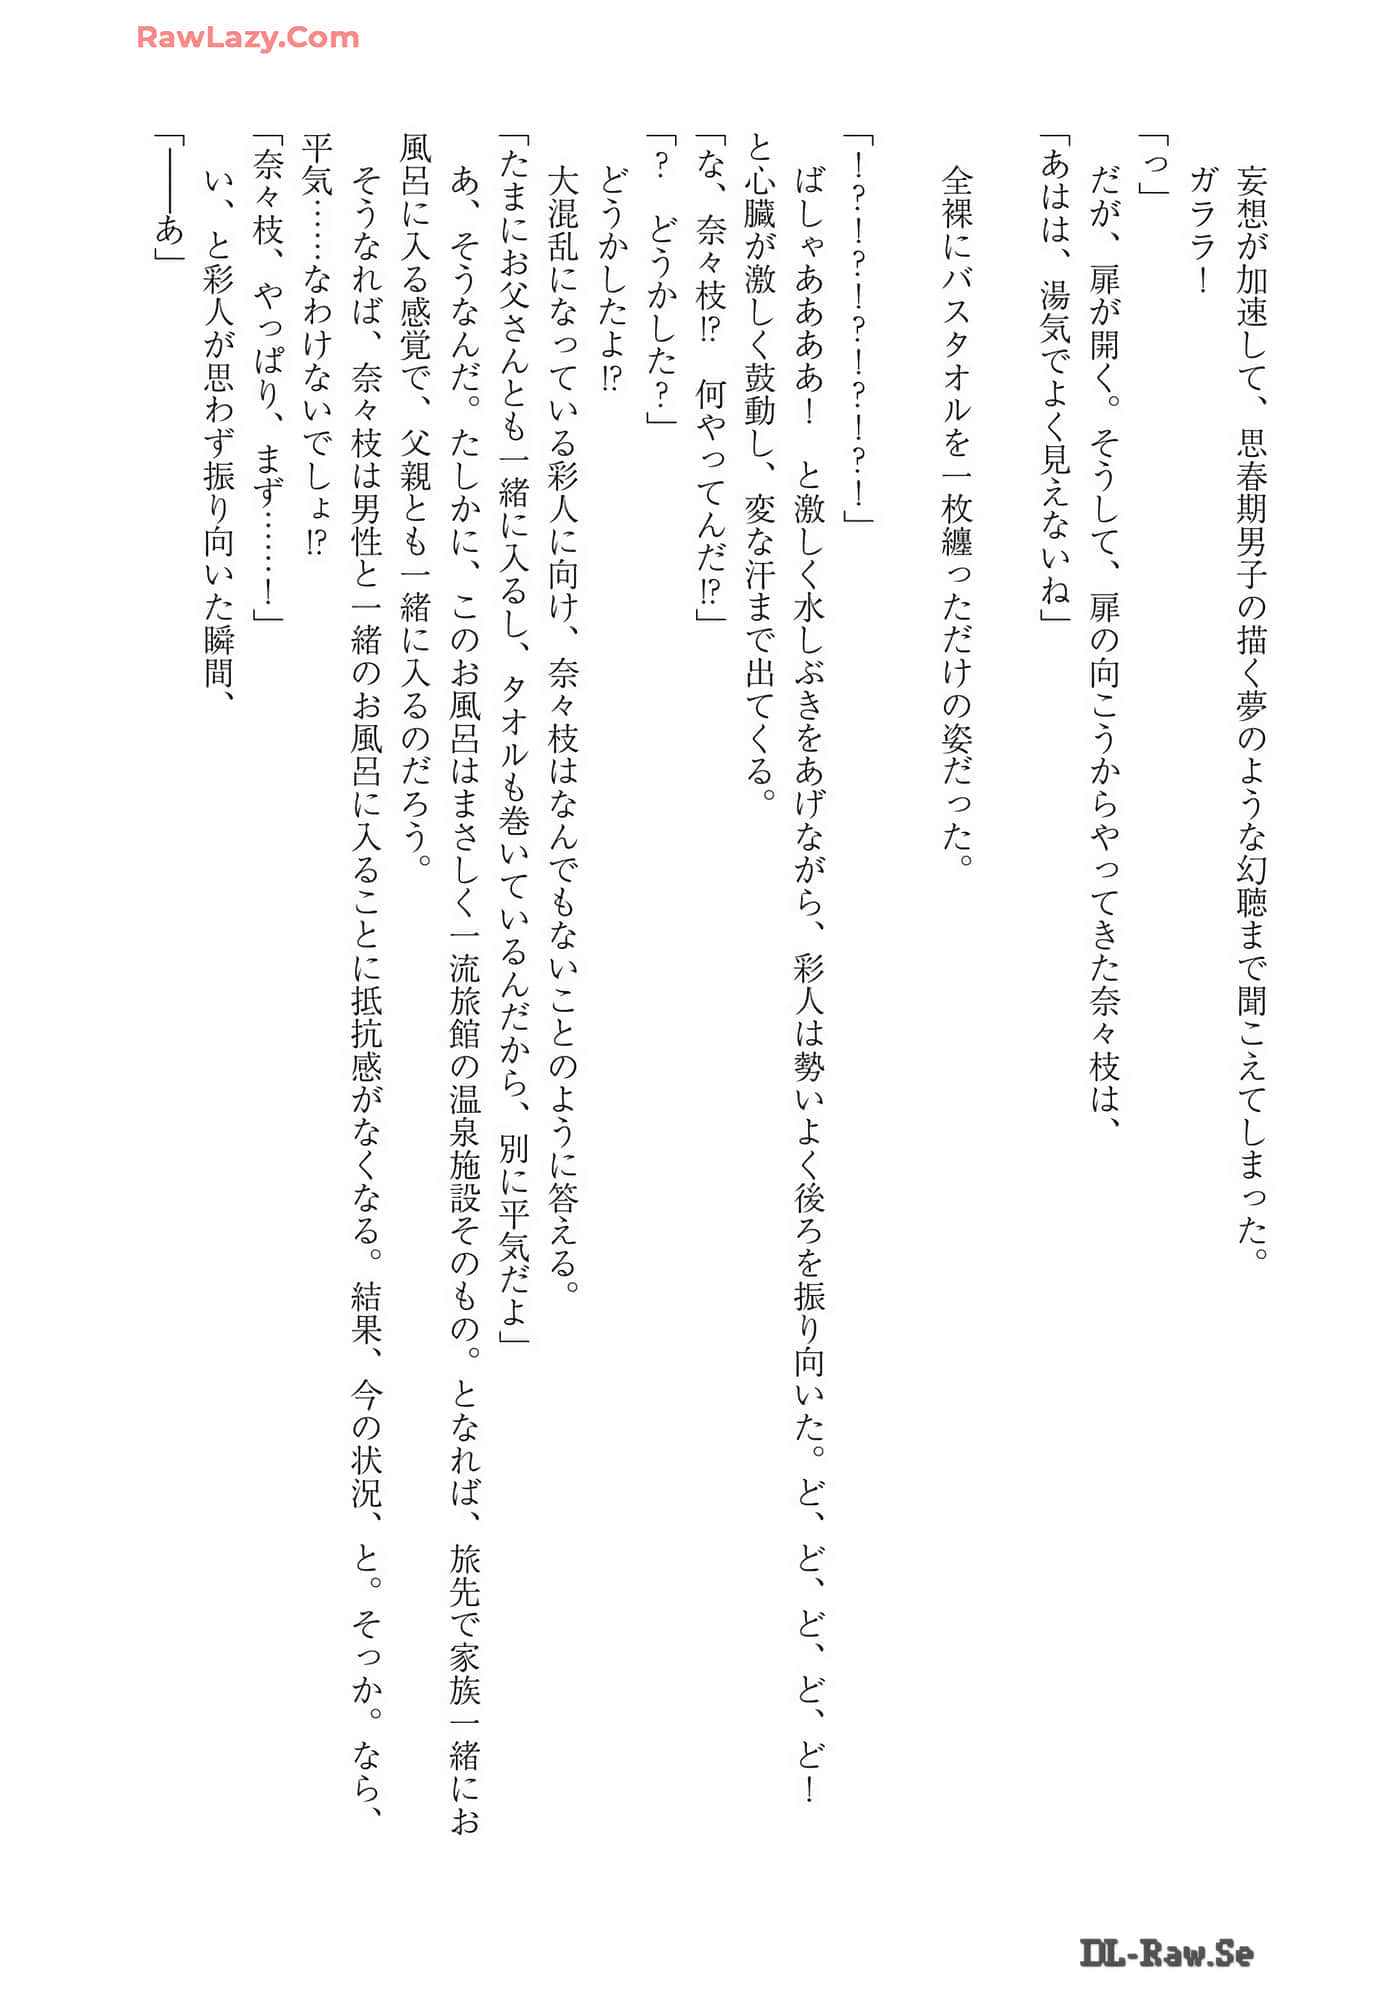 RawLazy.Com
妄想が加速して、思春期男子の描く夢のような幻聴まで聞こえてしまった。
ガララ！
「っ」
だが、扉が開く。そうして、扉の向こうからやってきた奈々枝は、
「あはは、湯気でよく見えないね」
全裸にバスタオルを一枚纏っただけの姿だった。
「！？！？！？！？！？！」
ばしゃああああ！　と激しく水しぶきをあげながら、彩人は勢いよく後ろを振り向いた。ど、ど、ど、ど、ど！
と心臓が激しく鼓動し、変な汗まで出てくる。
「な、奈々枝!?　何やってんだ!?」
「？　どうかした？」
どうかしたよ!?
大混乱になっている彩人に向け、奈々枝はなんでもないことのように答える。
「たまにお父さんとも一緒に入るし、タオルも巻いているんだから、別に平気だよ」
あ、そうなんだ。たしかに、このお風呂はまさしく一流旅館の温泉施設そのもの。となれば、旅先で家族一緒にお
風呂に入る感覚で、父親とも一緒に入るのだろう。
そうなれば、奈々枝は男性と一緒のお風呂に入ることに抵抗感がなくなる。結果、今の状況、と。そっか。なら、
平気……なわけないでしょ!?
「奈々枝、やっぱり、まず……！」
い、と彩人が思わず振り向いた瞬間、
「――あ」
DL-Raw.Se